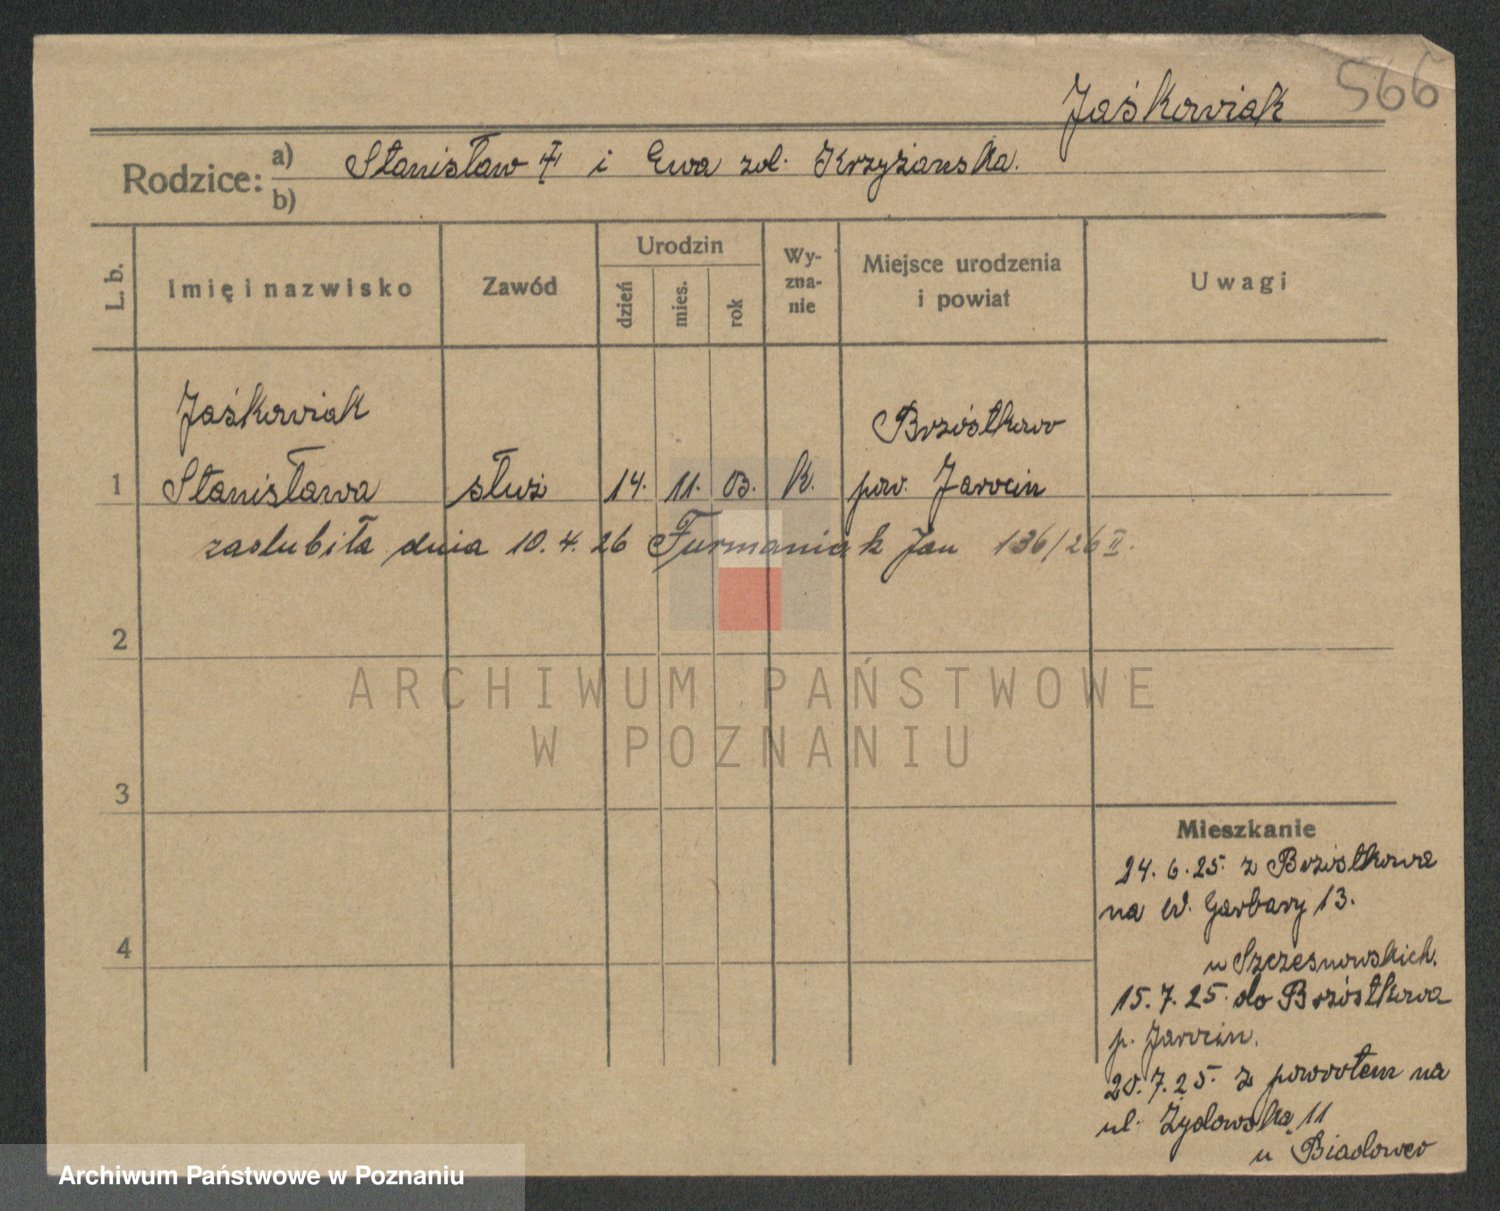 566
Jaśkowiak
Rodzice: a) Stanisław i Ewa zd. Krzyżanska.
b)
L. b.
Imię i nazwisko
Zawód
Urodzin
dzień
mies.
rok
Wy-
zna-
nie
Miejsce urodzenia
i powiat
Uwagi
Jaśkowiak
Brzóstkowo
1 Stanisława służ 14. 11. 03. k. pow. Jarocin
zaślubiła dnia 10. 4. 26 Furmaniak Jan 136/26 II.
2
3
4
Mieszkanie
24. 6. 25. z Brzóstkowa
na W. Garbary 13.
u Szczesnowskich.
15. 7. 25. do Brzóstkowa
p. Jarocin.
20. 7. 25. z powrotem na
ul. Żydowska 11
u
ARCHIWUM PAŃSTWOWE
W POZNANIU
Archiwum Państwowe w Poznaniu